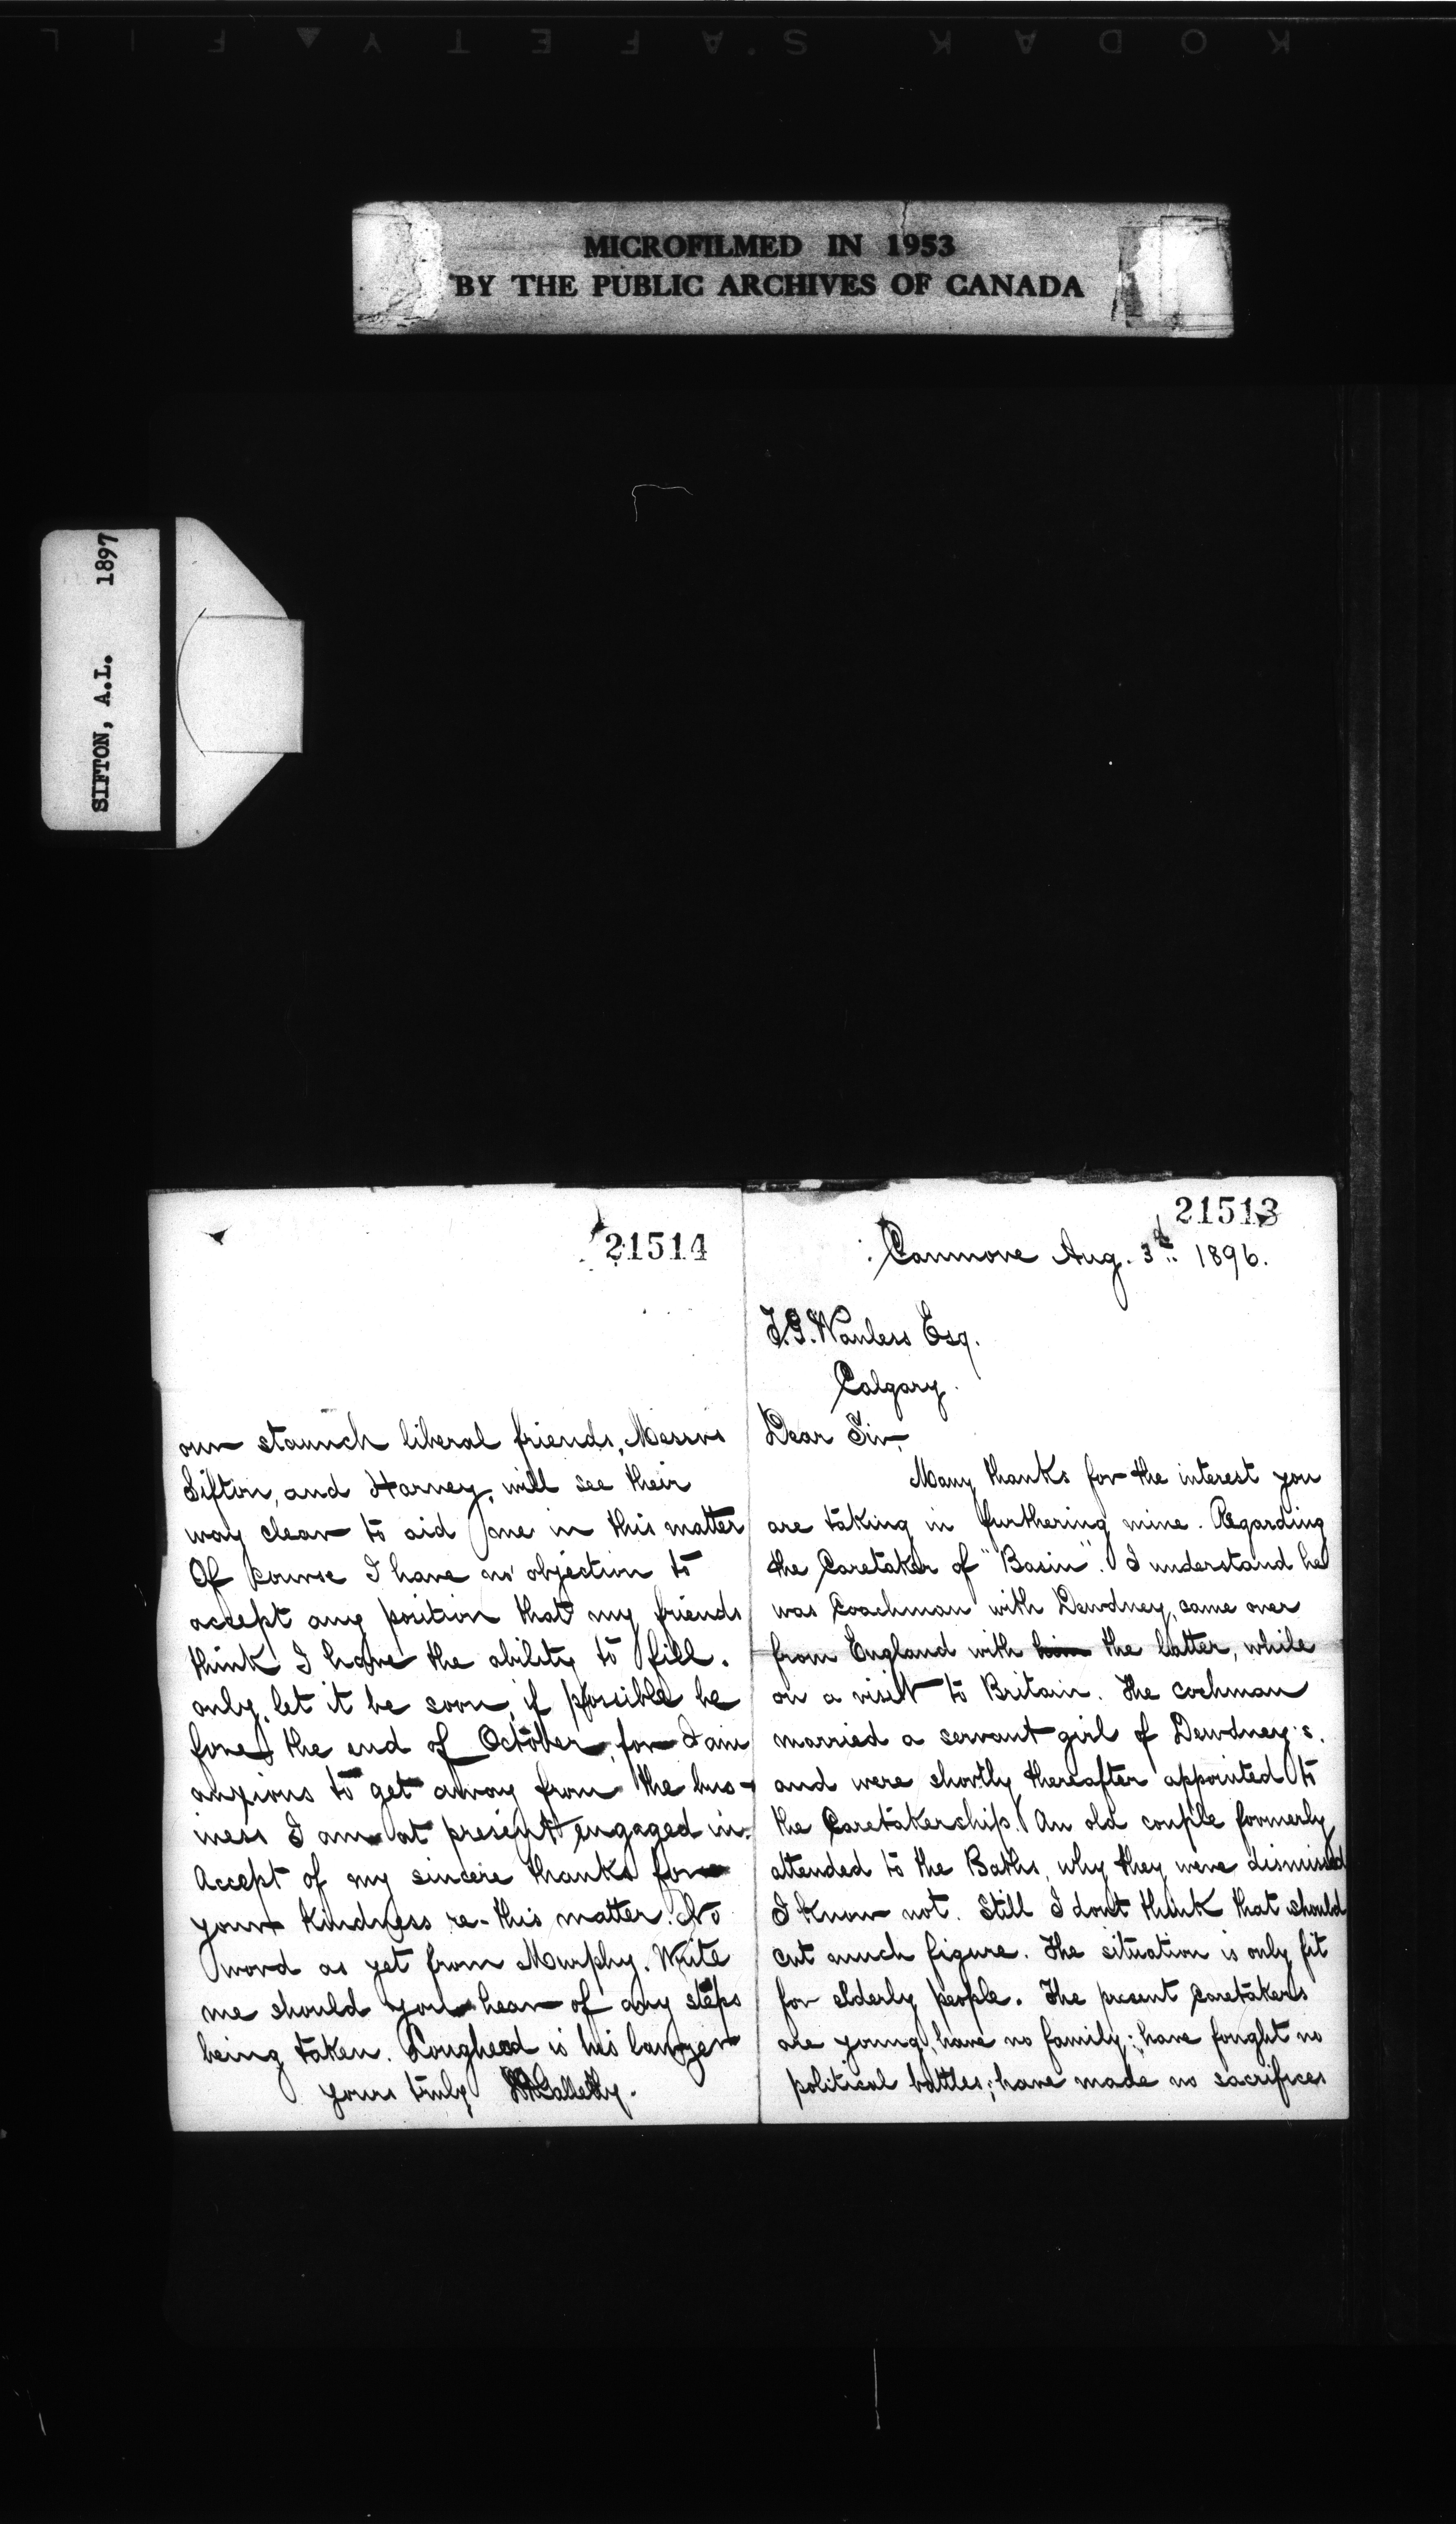 KODAK SAFETY FIL
MICROFILMED IN 1953
BY THE PUBLIC ARCHIVES OF CANADA
SIFTON, A.L. 1897
21514
our staunch liberal friends, Messrs
Sifton, and Harvey, will see their
way clear to aid one in this matter
Of course I have no objection to
accept any position that my friends
think I have the ability to fill.
only, let it be soon, if possible be
fore the end of October, for I am
anxious to get away from the bus-
iness I am at present engaged in.
Accept of my sincere thanks for
your kindness re-this matter. No
word as yet from Murphy. Write
me should you hear of any steps
being taken. Lougheed is his lawyer
yours truly Galletly.
21513
Canmore Aug. 3rd. 1896.
Wanless Esq.
Calgary.
Dear Sir,
Many thanks for the interest you
are taking in furthering mine. Regarding
the Caretaker of "Basin". I understand he
was Coachman with Dewdney, came over
from England with him the latter, while
on a visit to Britain. The cochman
married a servant girl of Dewdney's.
and were shortly thereafter appointed to
the Caretakership. An old couple formerly
attended to the Baths, why they were dismissed
I know not. Still I dont think that should
cut much figure. The situation is only fit
for elderly people. The present Caretakers
are young, have no family; have fought no
political battles; have made no sacrifices